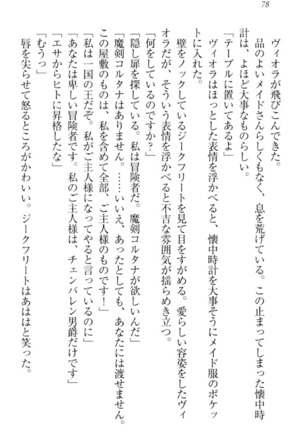 78
ヴィオラが飛びこんできた。
品のよいメイドさんらしくもなく、息を荒げている。この止まってしまった懐中時
計は、よほど大事なものらしい。
「テーブルに置いてあるよ」
ヴィオラはほっとした表情を浮かべると、懐中時計を大事そうにメイド服のポケッ
トに入れた。
壁をノックしているジークフリートを見て、目をすがめる。愛らしい容姿をしたヴィ
オラだが、そういう表情を浮かべると不吉な雰囲気が揺らめき立つ。
「何をしているのですか？」
「隠し扉を探している。私は冒険者だ。魔剣コルタナが欲しいんだ」
「魔剣コルタナはありません。……いいえ、あったとしても、あなたには渡せません。
この屋敷のものは、私を含めて全部、ご主人様のものです！」
「私は一国の王だぞ。私がご主人様になってやると言っているのに」
「あなたは卑しい冒険者です。私のご主人様は、チェンバレン男爵だけです」
「エサからヒトに昇格したな」
「むうっ」
唇を尖らせて怒るところがかわいい。ジークフリートはあははと笑った。